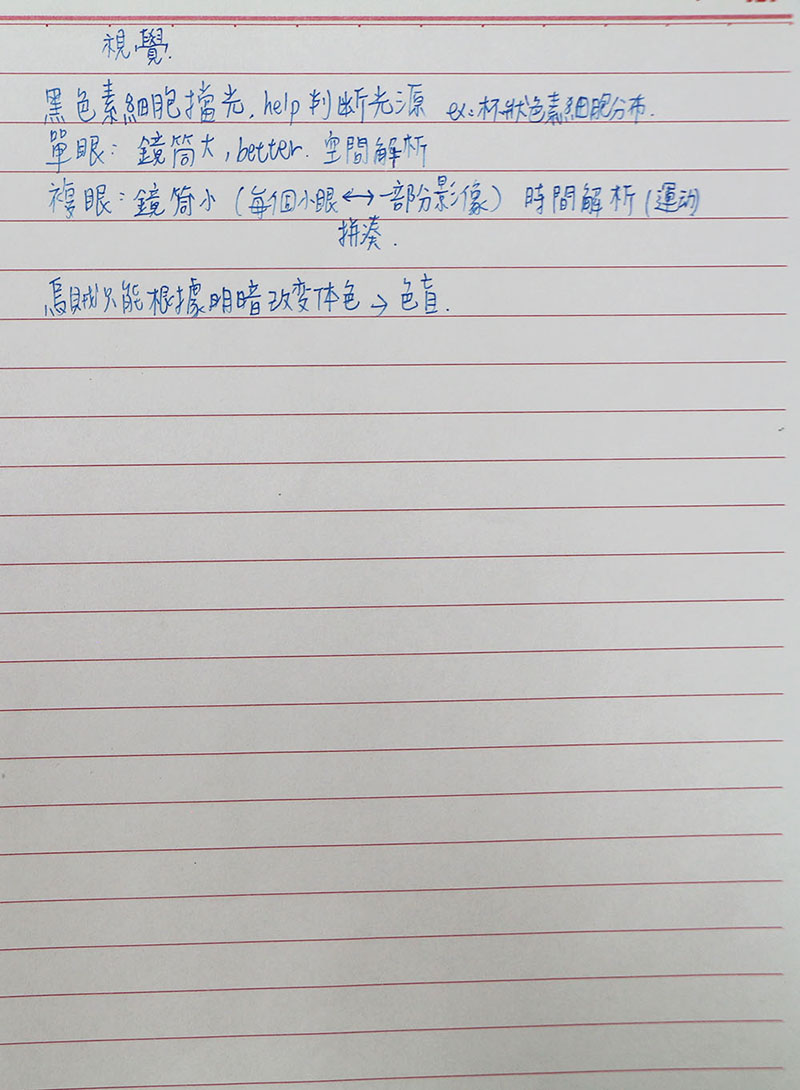 視覺.
黑色素細胞擋光, help 判断光源 ex: 杯狀色素細胞分布.
單眼: 鏡筒大, better. 空間解析
複眼: 鏡筒小 (每個小眼↔一部分影像) 時間解析 (運动)
拼湊.
烏賊只能根據明暗改变体色 → 色盲.